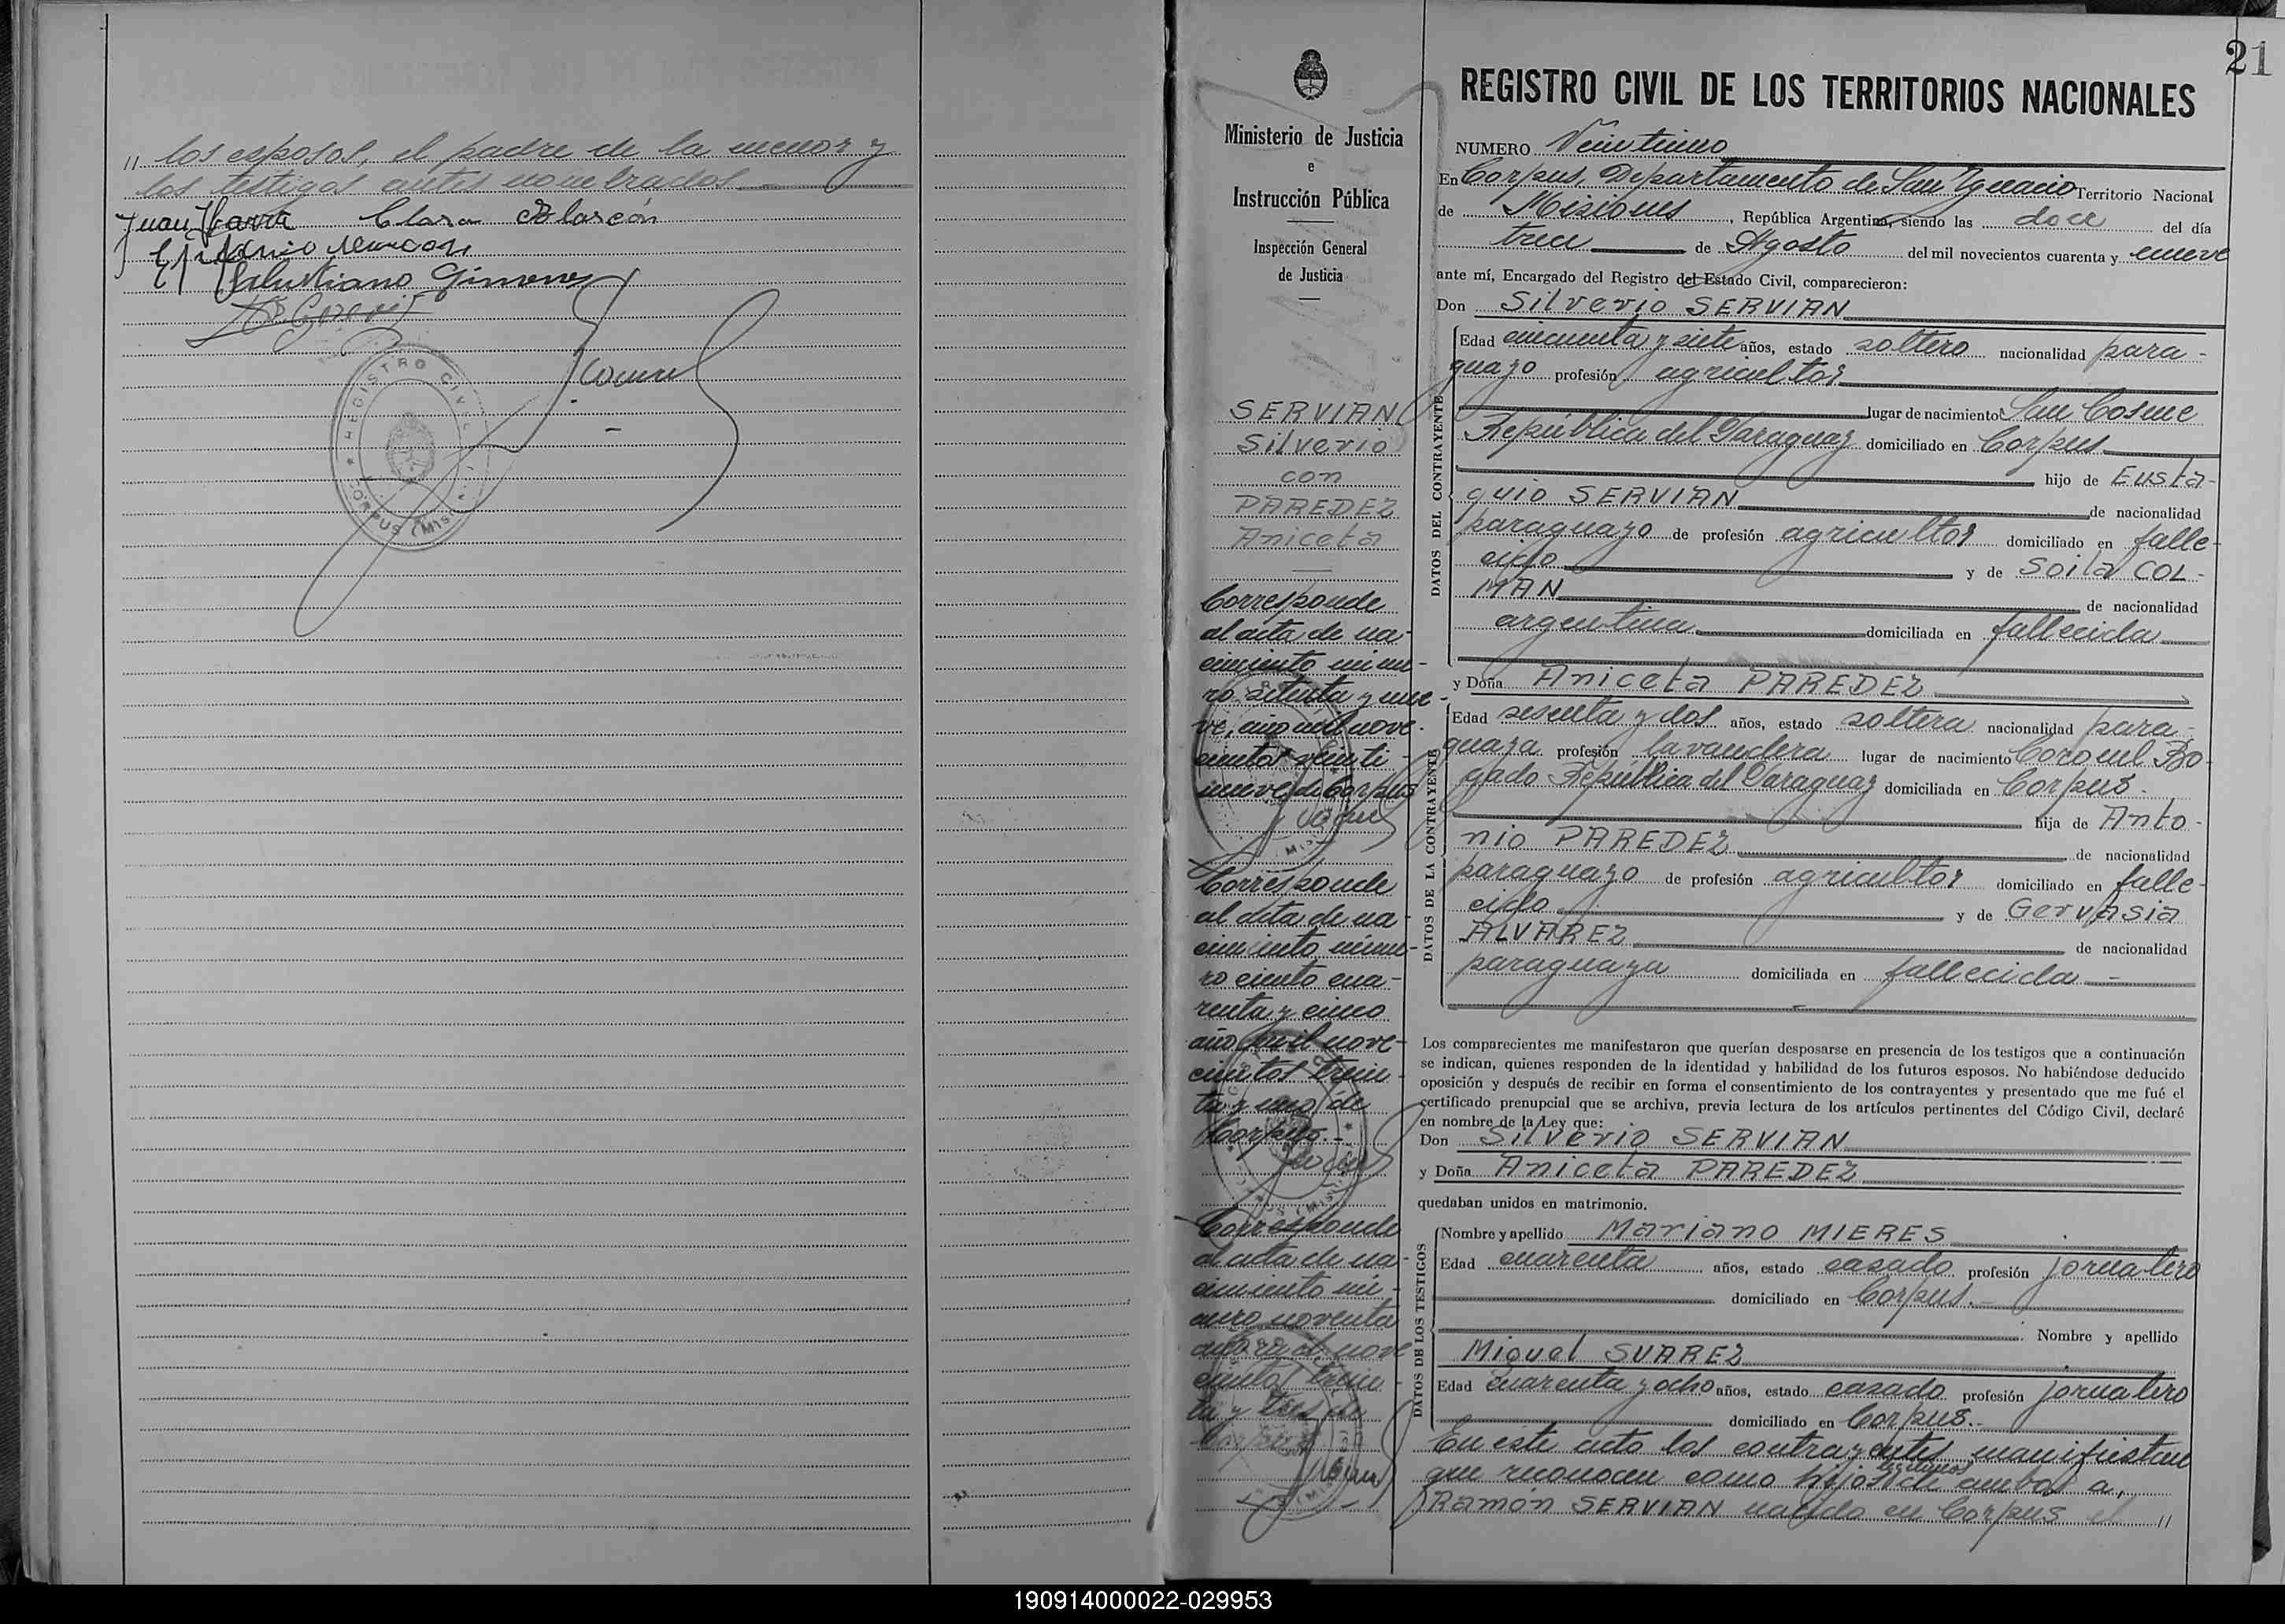 " los esposos, el padre de la menor y
los testigos antes nombrados.
Juan Ibarra Clara Alarcón
Epifanio Alarcon
Salustiano Gimenez
REGISTRO CIVIL
CORPUS (Mis
21
Ministerio de Justicia
e
Instrucción Pública
Inspección General
de Justicia
SERVIAN
Silverio
con
PAREDEZ
Aniceta
Corresponde
al acta de na-
cimiento núme-
ro setenta y nue-
ve, año mil nove-
cientos veinti
nueve de Corpus
Corresponde
al acta de na-
cimiento núme-
ro ciento cua-
renta y cinco
año mil nove-
cientos trein-
ta y uno de
Corpus.-
Corresponde
al acta de na-
cimiento nú-
mero noventa
año mil nove
cientos trein-
ta y tres de
Corpus
REGISTRO CIVIL DE LOS TERRITORIOS NACIONALES
NUMERO Veintiuno
En Corpus, Departamento de San Ygnacio Territorio Nacional
de Misiones, República Argentina, siendo las doce del día
trece de Agosto del mil novecientos cuarenta y nueve
ante mí, Encargado del Registro del Estado Civil, comparecieron:
Don Silverio SERVIAN
DATOS DEL CONTRAYENTE
Edad cincuenta y siete años, estado soltero nacionalidad para-
guayo profesión agricultor
lugar de nacimiento San Cosme
República del Paraguay domiciliado en Corpus
hijo de Eusta-
quio SERVIAN de nacionalidad
paraguayo de profesión agricultor domiciliado en falle-
cido y de Soila COL-
MAN de nacionalidad
argentina domiciliada en fallecida
y Doña Aniceta PAREDEZ
DATOS DE LA CONTRAYENTE
Edad sesenta y dos años, estado soltera nacionalidad para-
guaya profesión lavandera lugar de nacimiento Coronel Bo-
gado República del Paraguay domiciliada en Corpus.
hija de Anto-
nio PAREDEZ de nacionalidad
paraguayo de profesión agricultor domiciliado en falle-
cido y de Gervasia
ALVAREZ de nacionalidad
paraguaya domiciliada en fallecida
Los comparecientes me manifestaron que querían desposarse en presencia de los testigos que a continuación
se indican, quienes responden de la identidad y habilidad de los futuros esposos. No habiéndose deducido
oposición y después de recibir en forma el consentimiento de los contrayentes y presentado que me fué el
certificado prenupcial que se archiva, previa lectura de los artículos pertinentes del Código Civil, declaré
en nombre de la Ley que:
Don Silverio SERVIAN
y Doña Aniceta PAREDEZ
quedaban unidos en matrimonio.
DATOS DE LOS TESTIGOS
Nombre y apellido Mariano MIERES
Edad cuarenta años, estado casado profesión jornalero
domiciliado en Corpus.-
Nombre y apellido
Miguel SUAREZ
Edad cuarenta y ocho años, estado casado profesión jornalero
domiciliado en Corpus.-
En este acto los contrayentes manifiestan
que reconocen como hijos legítimos de ambos a,
Ramón SERVIAN nacido en Corpus el "
190914000022-029953